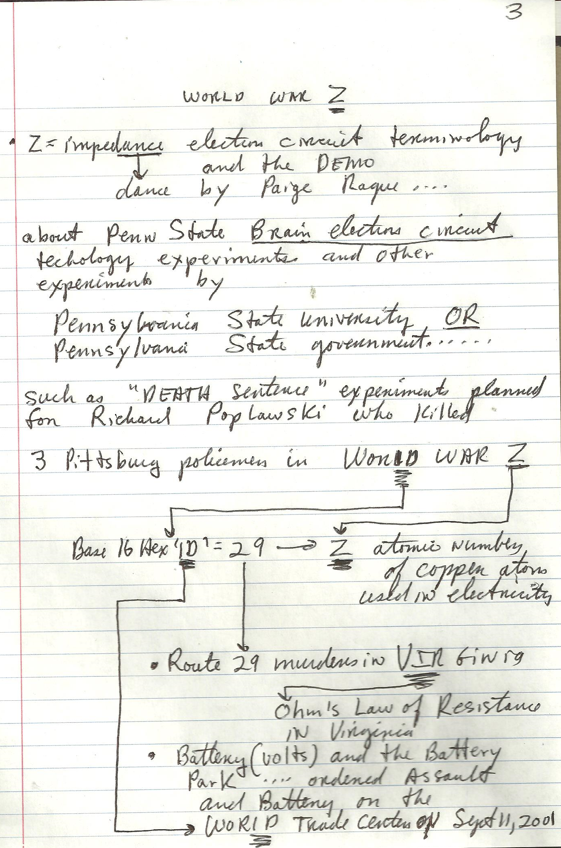 3
WORLD WAR Z
• Z = impedance election circuit terminology
and the DEMO
dance by Paige Raque ....
about Penn State Brain election circuit
techology experiments and other
experiments by
Pennsylvania State University OR
Pennsylvana State government......
such as "DEATH Sentence" experiments planned
for Richard Poplawski who killed
3 Pittsburg policemen in WorlD WAR Z
Base 16 Hex '1D' = 29 → Z atomic number
of copper atom
used in electricity
• Route 29 murders in VIR Ginia
Ohm's Law of Resistance
in Virginia
• Battery (volts) and the Battery
Park .... ordered Assault
and Battery on the
WORlD Trade Center of Sept 11, 2001